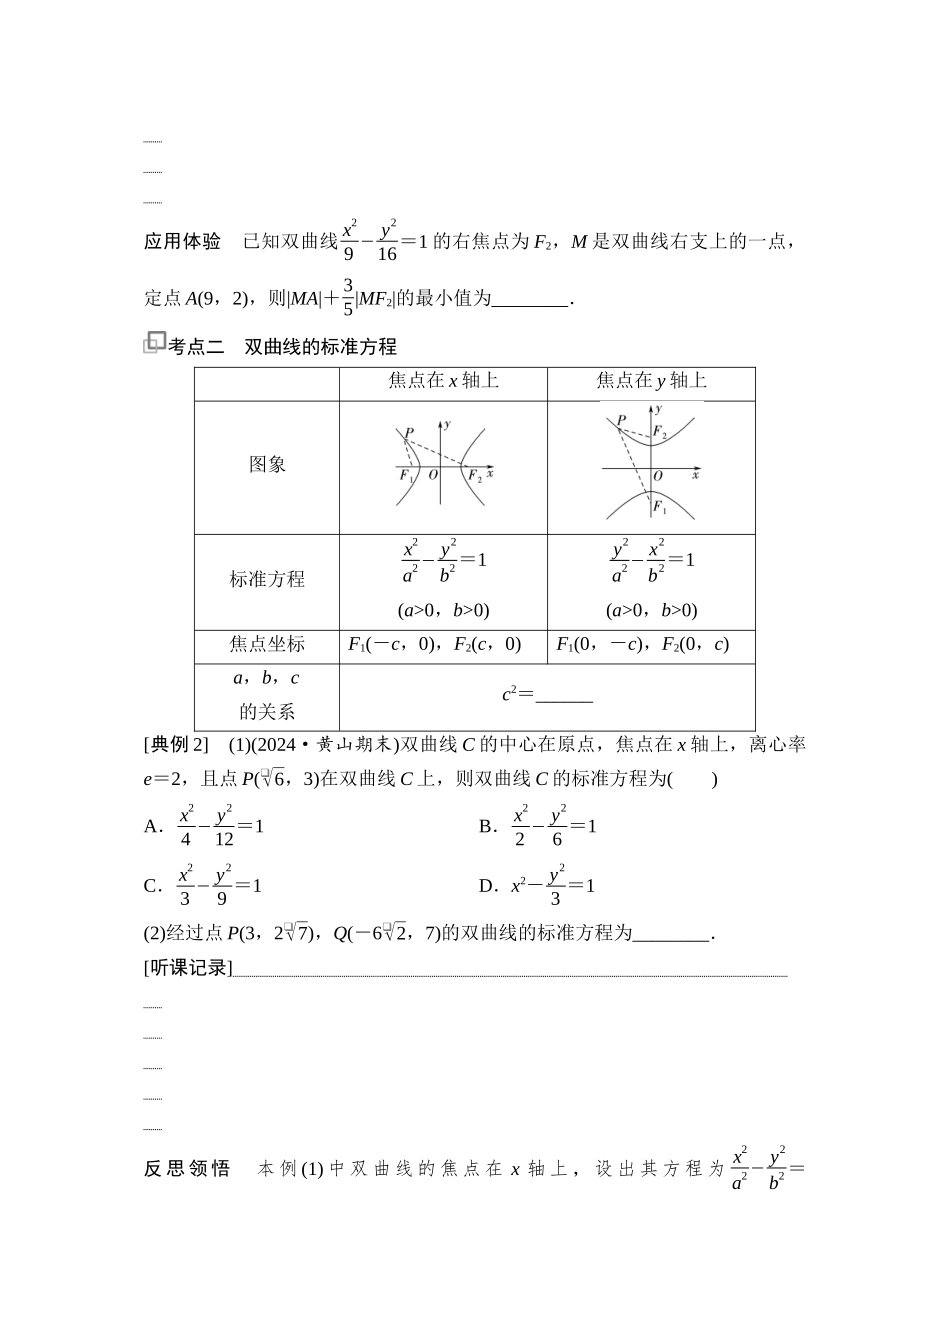 应用体验　已知双曲线x²/9－y²/16＝1的右焦点为F₂，M是双曲线右支上的一点，
定点A(9，2)，则|MA|＋3/5|MF₂|的最小值为________．
考点二　双曲线的标准方程
焦点在x轴上　焦点在y轴上
图象
P y F₁ O F₂ x
P y F₂ O x F₁
标准方程　x²/a²－y²/b²＝1　y²/a²－x²/b²＝1
(a>0，b>0)　(a>0，b>0)
焦点坐标　F₁(－c，0)，F₂(c，0)　F₁(0，－c)，F₂(0，c)
a，b，c
的关系　c²＝______
[典例2]　(1)(2024·黄山期末)双曲线C的中心在原点，焦点在x轴上，离心率
e＝2，且点P(√6，3)在双曲线C上，则双曲线C的标准方程为(　　)
A．x²/4－y²/12＝1　B．x²/2－y²/6＝1
C．x²/3－y²/9＝1　D．x²－y²/3＝1
(2)经过点P(3，2√7)，Q(－6√2，7)的双曲线的标准方程为________．
[听课记录]
反思领悟　本例(1)中双曲线的焦点在x轴上，设出其方程为x²/a²－y²/b²＝